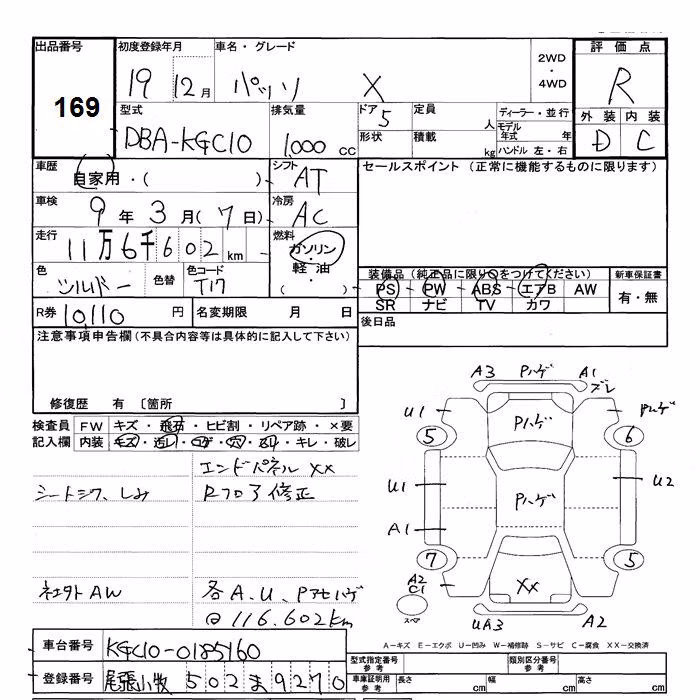 出品番号 169
初度登録年月 19 12月
車名・グレード パッソ X
2WD・4WD
評価点 R
外装 内装
D C
型式 DBA-KGC10
排気量 1,000 cc
ドア 5
定員 人
ディーラー・並行
モデル年式 年
形状
積載 kg
ハンドル 左・右
車歴 自家用・( )
シフト AT
セールスポイント (正常に機能するものに限ります)
車検 9年3月(7日)
冷房 AC
走行 11万6千602km
燃料 ガソリン・軽油・( )
色 シルバー
色替
色コード T17
装備品(純正品に限り○をつけてください)
新車保証書
PS・PW・ABS・エアB AW
有・無
SR ナビ TV カワ
R券 10110円
名変期限 月 日
後日品
注意事項申告欄(不具合内容等は具体的に記入して下さい)
修復歴 有 〔箇所 〕
検査員 FW キズ・飛石・ヒビ割・リペア跡・×要
記入欄 内装 キズ・汚レ・コゲ・穴・スリ・キレ・破レ
エンドパネル XX
シートシワ、しみ
Rフロア修正
社外AW
各A、U、Pアセハゲ
@116.602km
A3 Pハゲ A1
ズレ
U1 Pハゲ Pハゲ
5 6
U1 Pハゲ U2
A1
7 5
A2
C1
XX
スペア
UA3 A2
A-キズ E-エクボ U-凹み W-補修跡 S-サビ C-腐食 XX-交換済
車台番号 KGC10-0185160
型式指定番号 参考
類別区分番号 参考
登録番号 尾張小牧 502ま9270
車庫証明用 参考
長さ cm
幅 cm
高さ cm